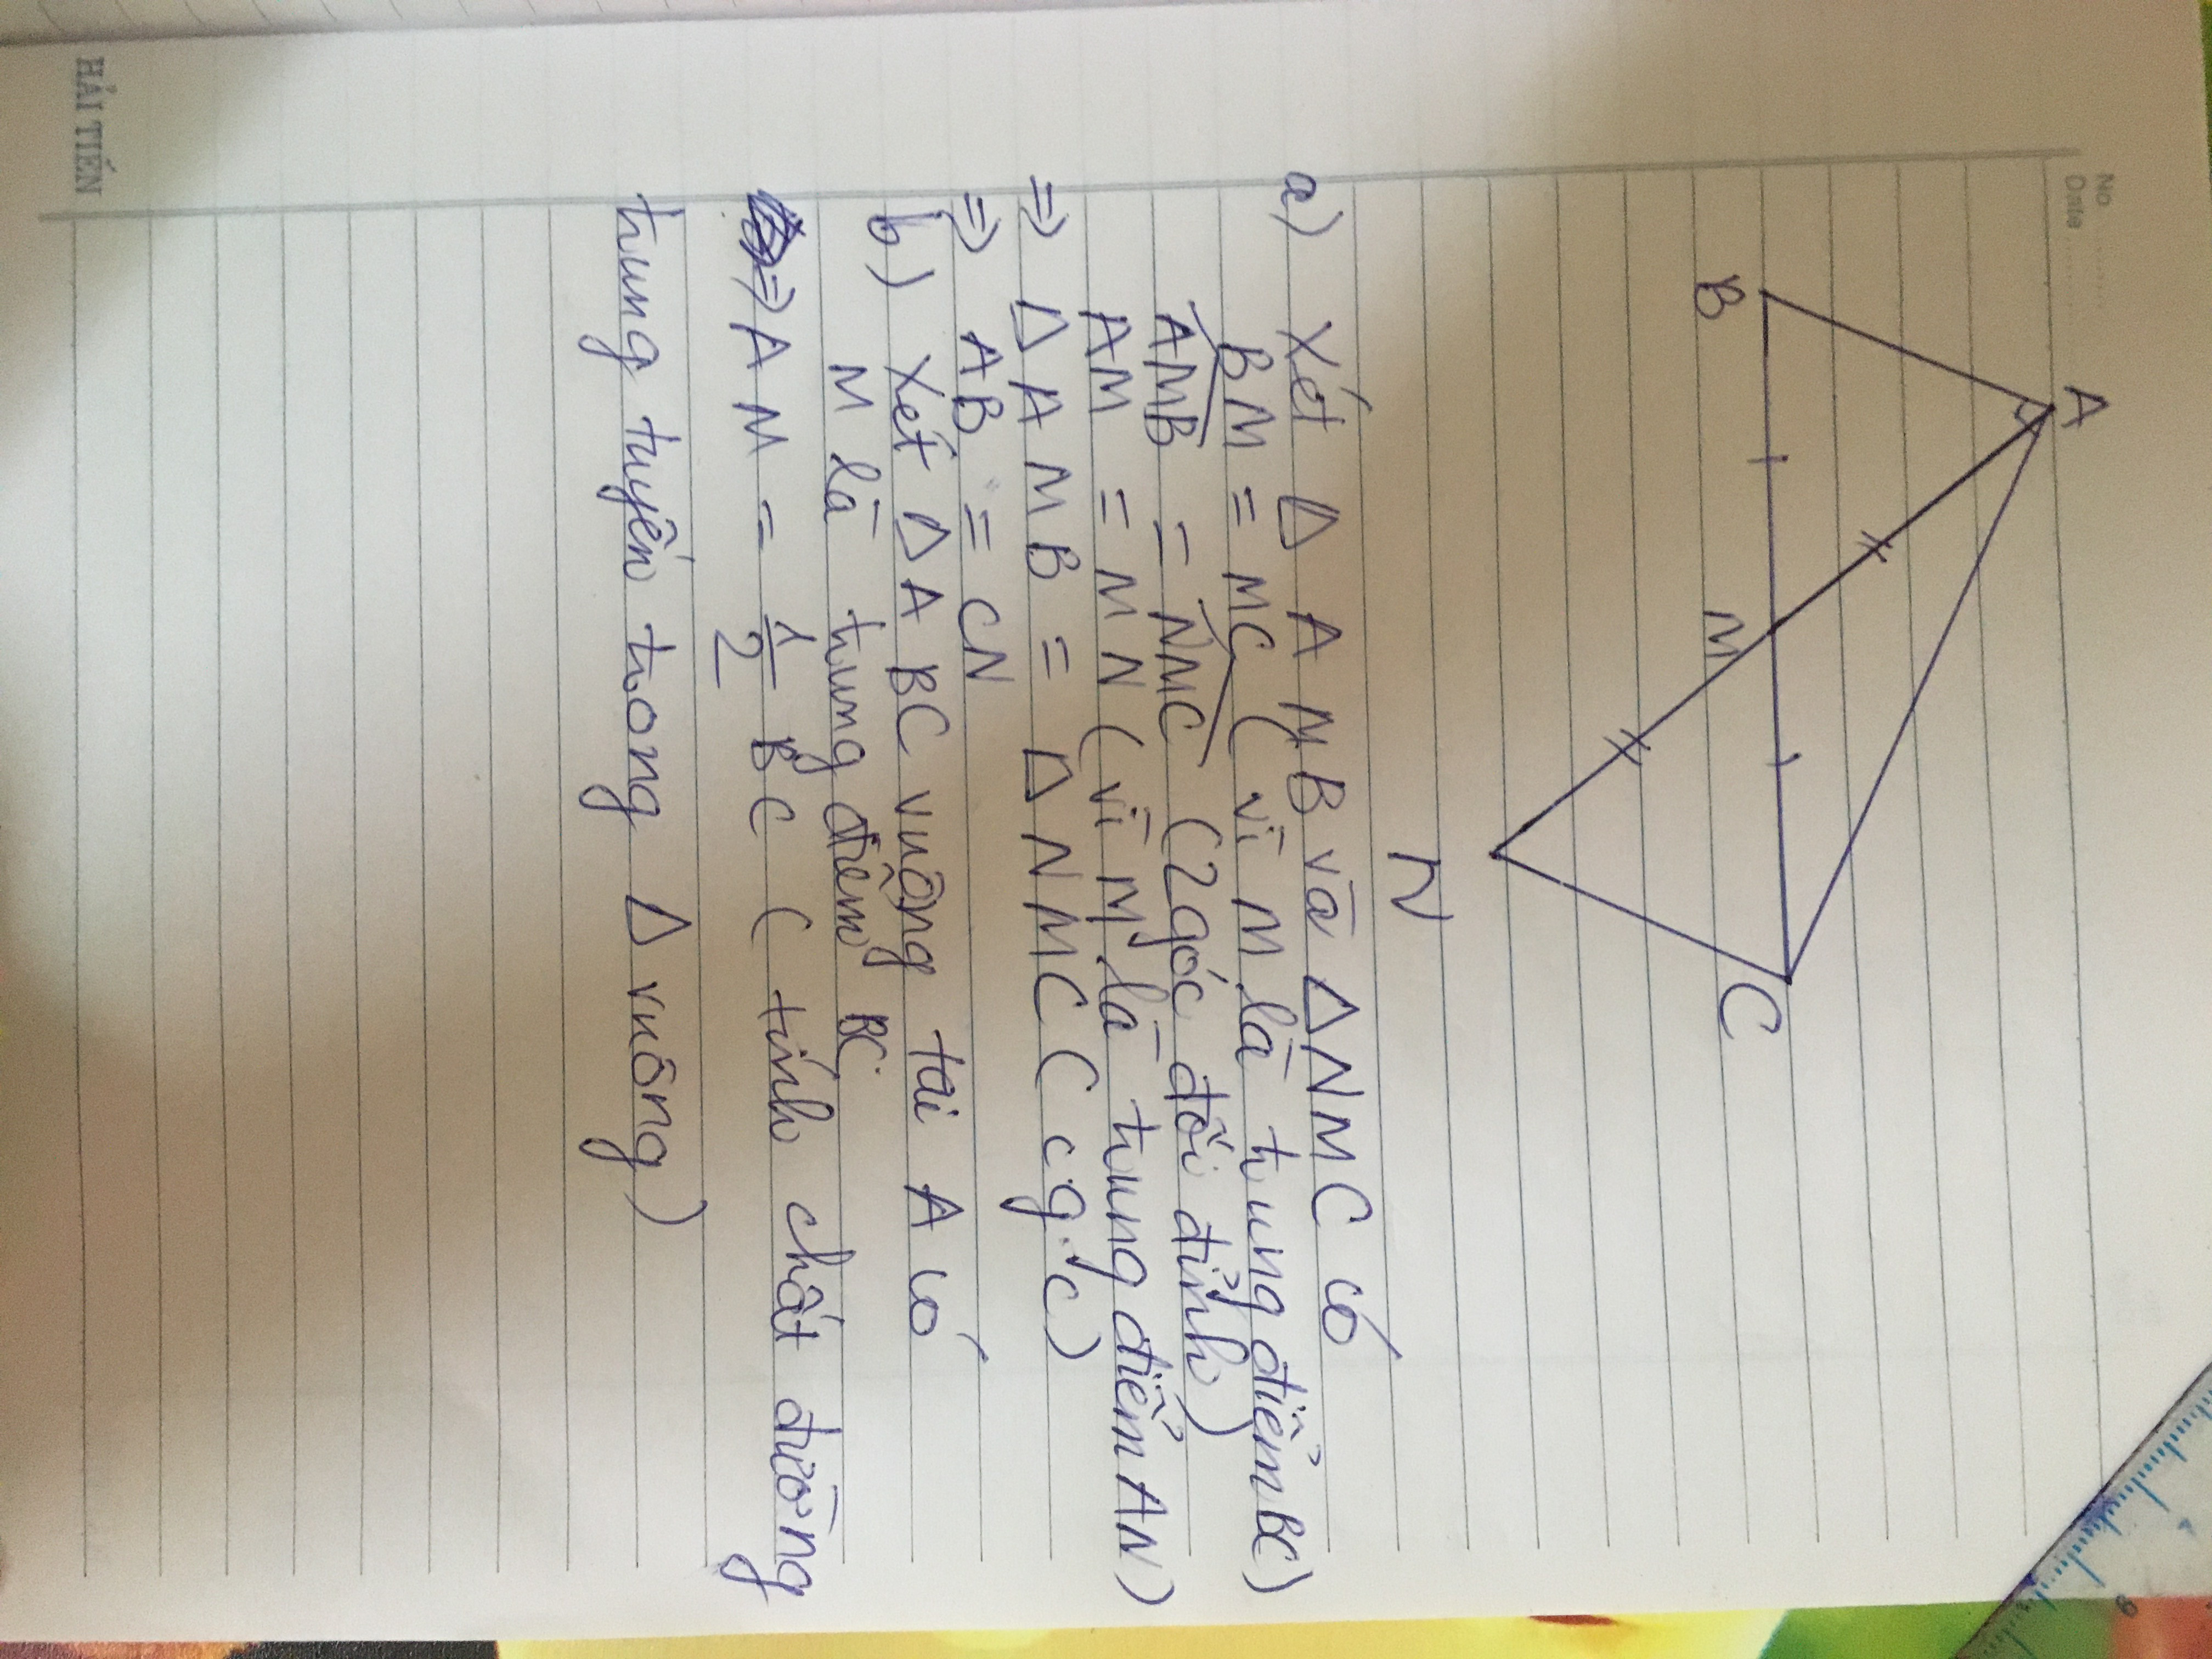 No
Date
A
B
M
C
N
a) Xét Δ AMB và ΔNMC có
BM = MC (vì M là trung điểm BC)
AMB = NMC (2 góc đối đỉnh)
AM = MN (vì M là trung điểm AN)
=> ΔAMB = ΔNMC C c.g.c)
=> AB = CN
b) Xét ΔABC vuông tai A có
M là trung điểm BC.
=> AM = 1/2 BC ( tính chất đường
trung tuyến trong Δ vuông)
HẢI TIẾN
9